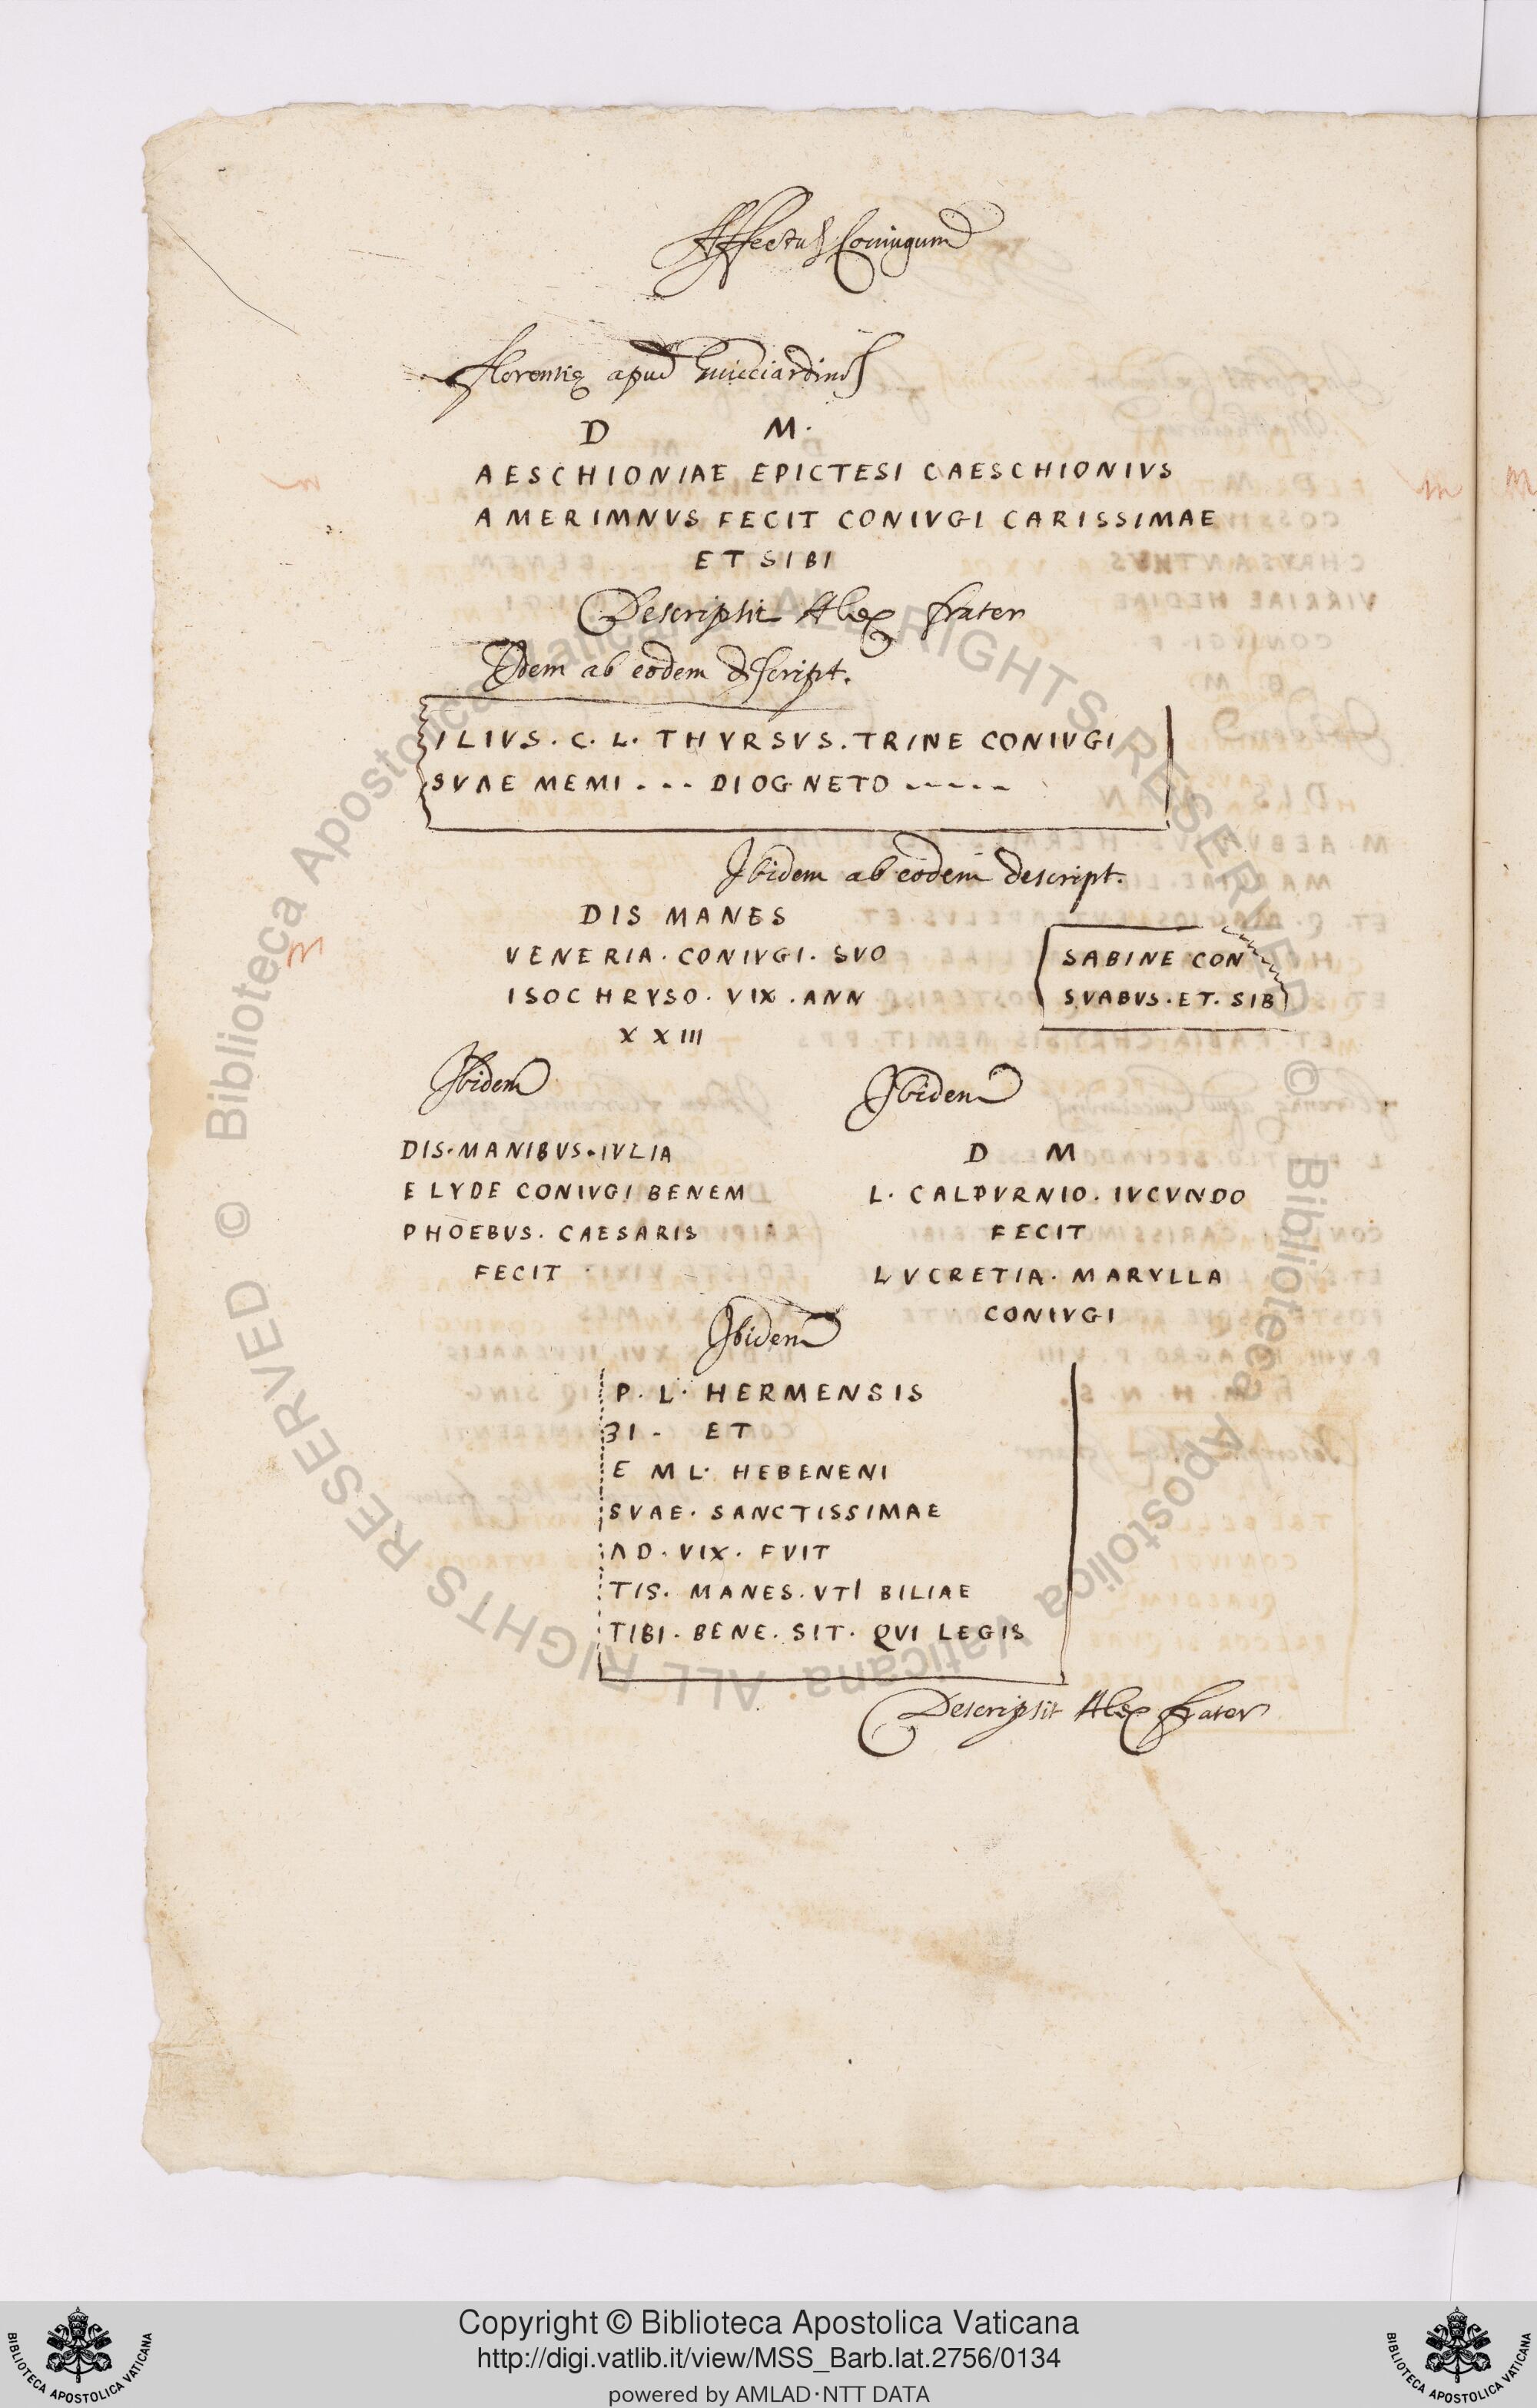 Affectus Coniugum
Florentię apud Guicciardinos
D M.
AESCHIONIAE EPICTESI CAESCHIONIVS
AMERIMNVS FECIT CONIVGI CARISSIMAE
ET SIBI
Descripsit Alex frater
Ibidem ab eodem descript.
ILIVS. C. L. THVRSVS. TRINE CONIVGI
SVAE MEMI . . . DIOGNETO -----
Ibidem ab eodem descript.
DIS MANES
VENERIA. CONIVGI. SVO
ISOCHRYSO. VIX. ANN
XXIII
SABINE CON
SVABVS. ET. SIB
Ibidem
DIS. MANIBVS. IVLIA
ELYDE CONIVGI BENEM
PHOEBVS. CAESARIS
FECIT
Ibidem
D M
L. CALPVRNIO. IVCVNDO
FECIT
LVCRETIA. MARVLLA
CONIVGI
Ibidem
P. L. HERMENSIS
3I - ET
E ML. HEBENENI
SVAE. SANCTISSIMAE
AD. VIX. FVIT
TIS. MANES. VTI BILIAE
TIBI. BENE. SIT. QVI LEGIS
Descripsit Alex frater
© Biblioteca Apostolica Vaticana ALL RIGHTS RESERVED © Biblioteca Apostolica Vaticana ALL RIGHTS RESERVED
Copyright © Biblioteca Apostolica Vaticana
http://digi.vatlib.it/view/MSS_Barb.lat.2756/0134
powered by AMLAD·NTT DATA
BIBLIOTECA APOSTOLICA VATICANA
BIBLIOTECA APOSTOLICA VATICANA